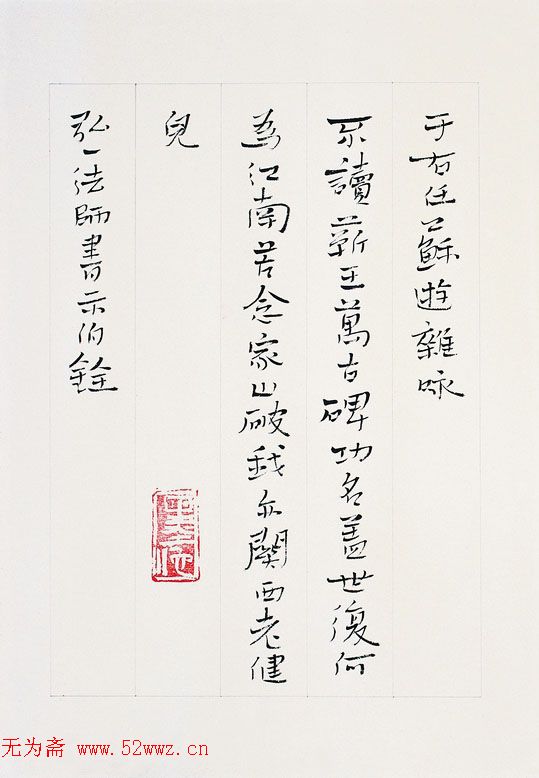 于右任蘇遊雜咏
不讀蘄王萬古碑功名盖世復何
為江南苦念家山破我亦關西老健
兒
弘一法師書示伯銓
无为斋 www.52wwz.cn